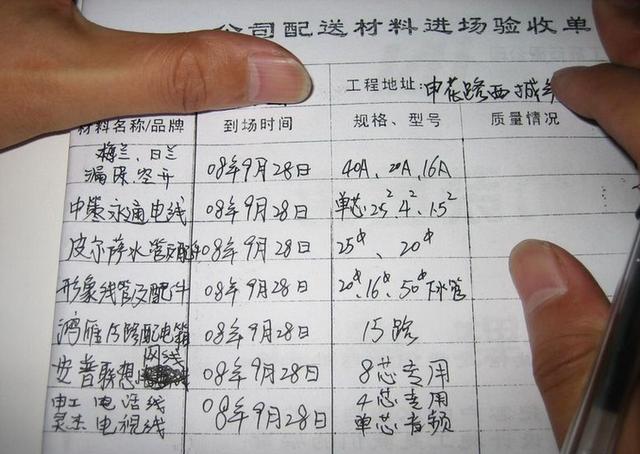 公司配送材料进场验收单
工程地址:申花路西城年
材料名称/品牌 到场时间 规格、型号 质量情况
梅兰、日兰
漏保、空开 08年9月28日 40A、20A、16A
中策永通电线 08年9月28日 单芯2.5² 4² 1.5²
皮尔萨水管及配件 08年9月28日 25φ、20φ
形象线管及配件 08年9月28日 20φ、16φ、50φ下水管
鸿雁15路配电箱 08年9月28日 15路
网线
安普联想 08年9月28日 8芯专用
电工电话线 4芯专用
08年9月28日
吴杰电视线 单芯音频